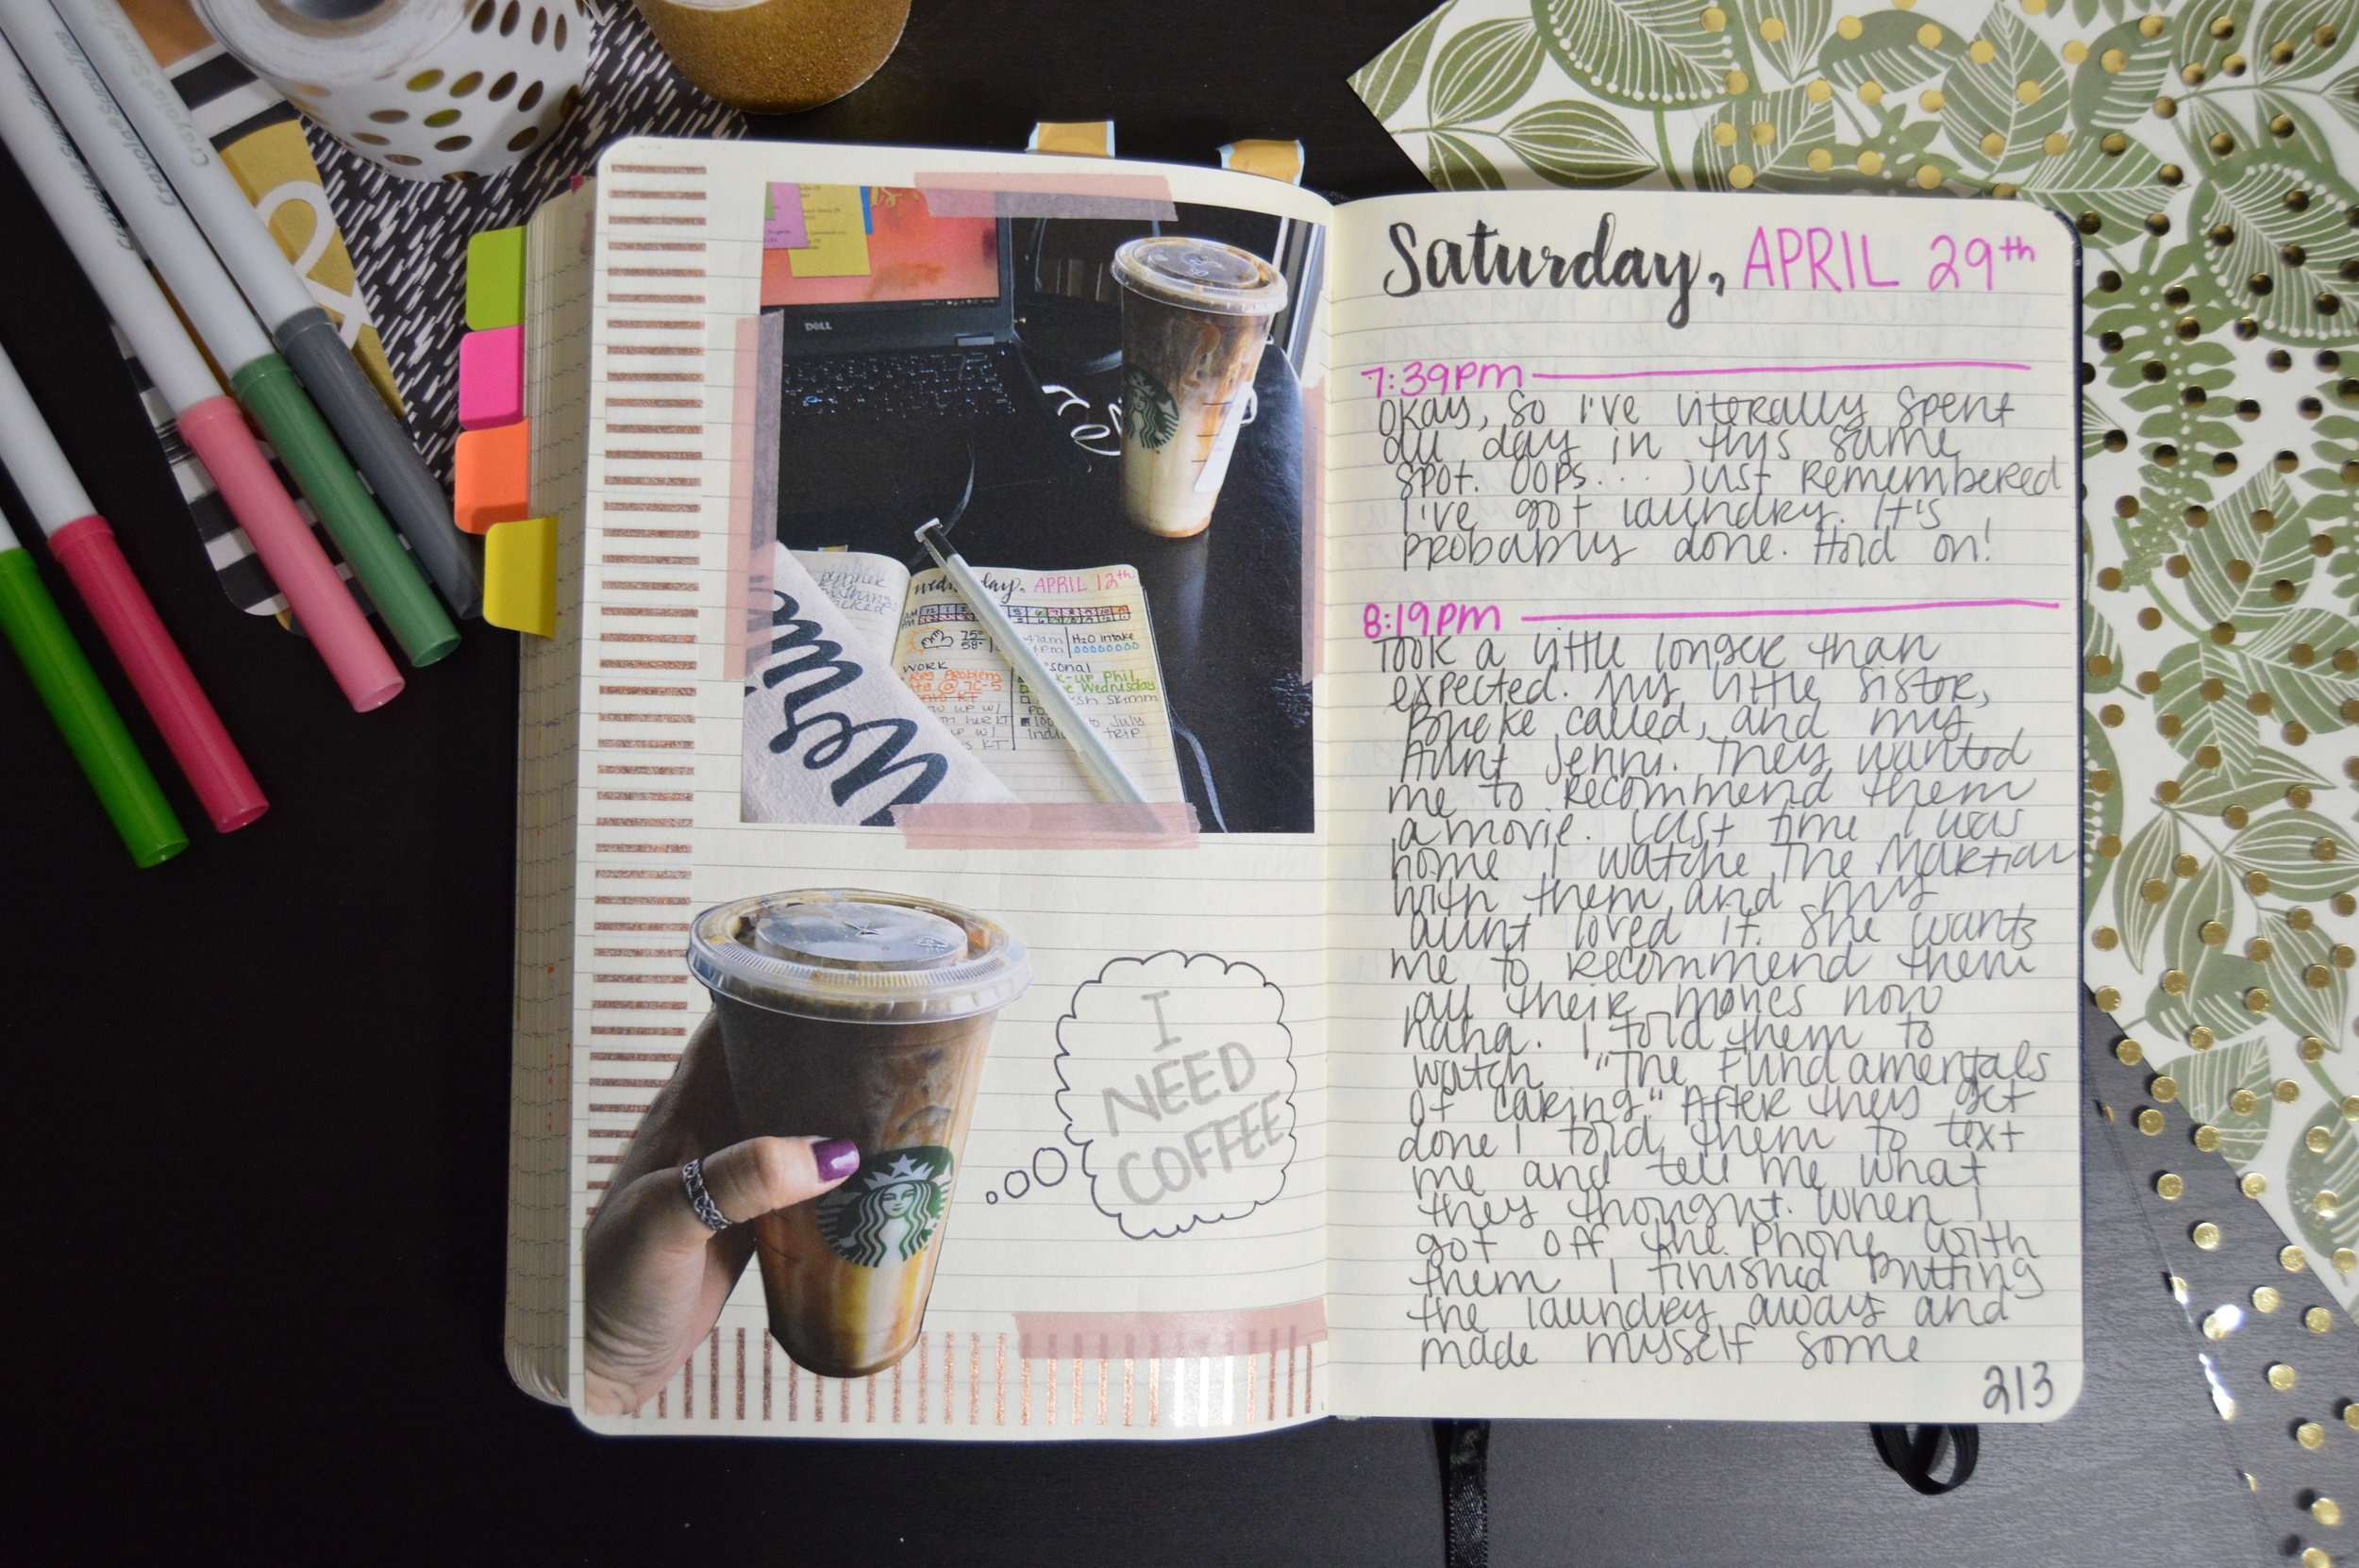 Crayola SuperTips
Crayola SuperTips
&
DELL
Wednesday, APRIL 12th
75°
58°
H2O intake
WORK
Personal
Key Problem
@ 7C-5
Wednesday
KT
up w/
to July
her KT
trip
up w/
KT
I
NEED
COFFEE
Saturday, APRIL 29th
7:39PM
Okay, so I've literally spent
all day in this same
spot. Oops... just remembered
I've got laundry. It's
probably done. Hold on!
8:19PM
Took a little longer than
expected. My little sister,
Brooke called, and my
Aunt Jenni. They wanted
me to recommend them
a movie. Last time I was
home I watche The Martian
with them and my
aunt loved it. She wants
me to recommend them
all their movies now
haha. I told them to
watch "The Fundamentals
of Caring" After they get
done I told them to text
me and tell me what
they thought. When I
got off the phone with
them I finished putting
the laundry away and
made myself some
213